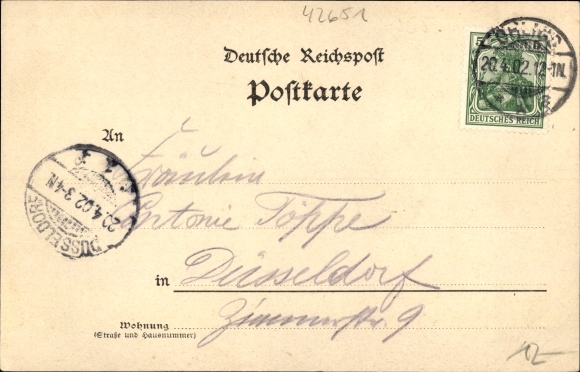 42651
Deutsche Reichspost
Postkarte
5
DEUTSCHES REICH
20.4.02.12-1N.
An
Fräulein
Antonie Töppe
in Düsseldorf
Zimmerstr. 9
Wohnung
(Straße und Hausnummer)
DÜSSELDORF
20.4.02.3-4N.